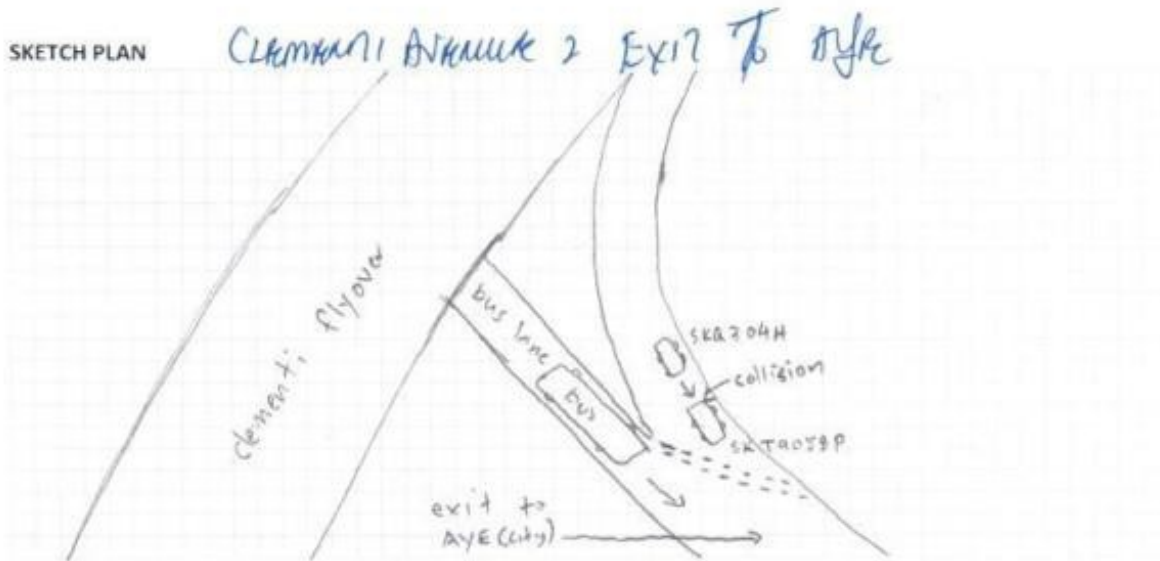 SKETCH PLAN
CLEMENTI AVENUE 2 EXIT TO AYE
clementi flyover
bus lane
bus
SKQ304H
collision
exit to
AYE (city)